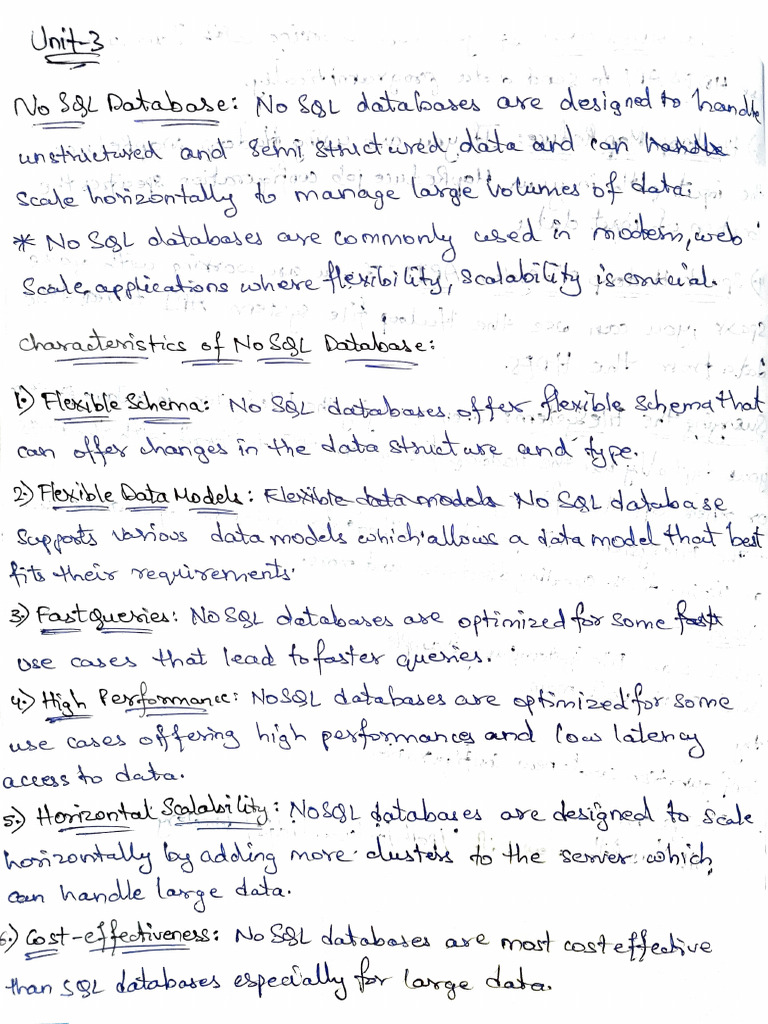 Unit-3
No SQL Database: No SQL databases are designed to handle
unstructured and semi structured data and can handle
scale horizontally to manage large volumes of data.
* No SQL databases are commonly used in modern, web
Scale applications where flexibility, scalability is crucial.
Characteristics of No SQL Database:
1.) Flexible Schema: No SQL databases offer flexible schema that
can offer changes in the data structure and type.
2.) Flexible Data Models: Flexible data models No SQL database
Supports various data models which allows a data model that best
fits their requirements.
3.) Fast queries: No SQL databases are optimized for some fast
use cases that lead to faster queries.
4.) High Performance: NoSQL databases are optimized for some
use cases offering high performances and low latency
access to data.
5.) Horizontal Scalability: NoSQL databases are designed to scale
horizontally by adding more clusters to the server which
can handle large data.
6.) Cost-effectiveness: No SQL databases are most cost effective
than SQL databases especially for large data.